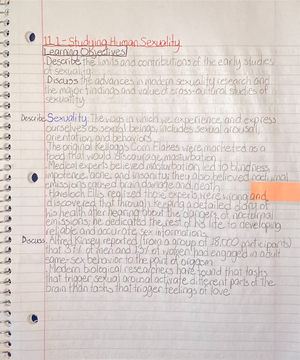 11.1 - Studying Human Sexuality
Learning Objectives
· Describe the limits and contributions of the early studies
of sexuality.
· Discuss the advances in modern sexuality research and
the major findings and valued cross-cultural studies of
sexuality.
Describe Sexuality: The ways in which we experience and express
ourselves as sexual beings; includes sexual arousal,
orientation, and behaviors.
· The original Kellogg's Corn Flakes were marketed as a
food that would discourage masturbation.
· Medical experts believed masturbation led to blindness,
impotence, acne, and insanity; they also believed nocturnal
emissions caused brain damage and death.
· Havelock Ellis realized those experts were wrong and
discovered that through keeping a detailed diary of
his health after hearing about the dangers of nocturnal
emissions, he dedicated the rest of his life to developing
reliable and accurate sex information.
Discuss · Alfred Kinsey reported (from a group of 18,000 participants)
that 37% of men and 13% of women had engaged in adult
same-sex behavior to the point of orgasm.
· Modern biological researchers have found that tasks
that trigger sexual arousal activate different parts of the
brain than tasks that trigger feelings of love.